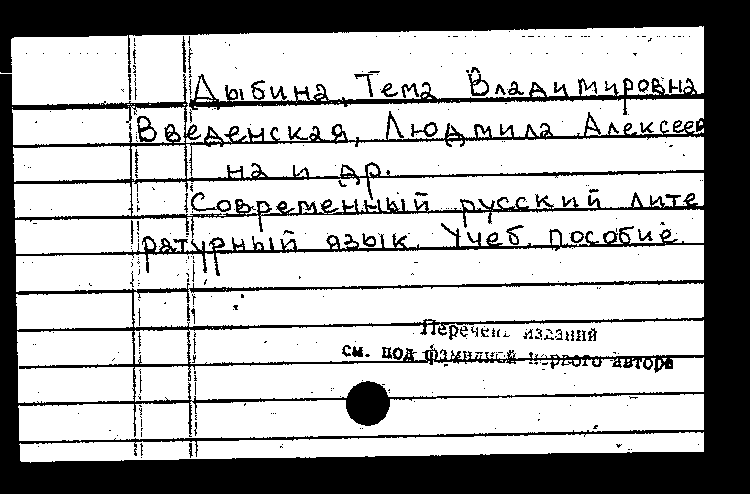 Дыбина, Тема Владимировна
Введенская, Людмила Алексеев
на и др.
Современный русский лите
ратурный язык. Учеб. пособие.
Перечень изданий
см. под фамилией первого автора